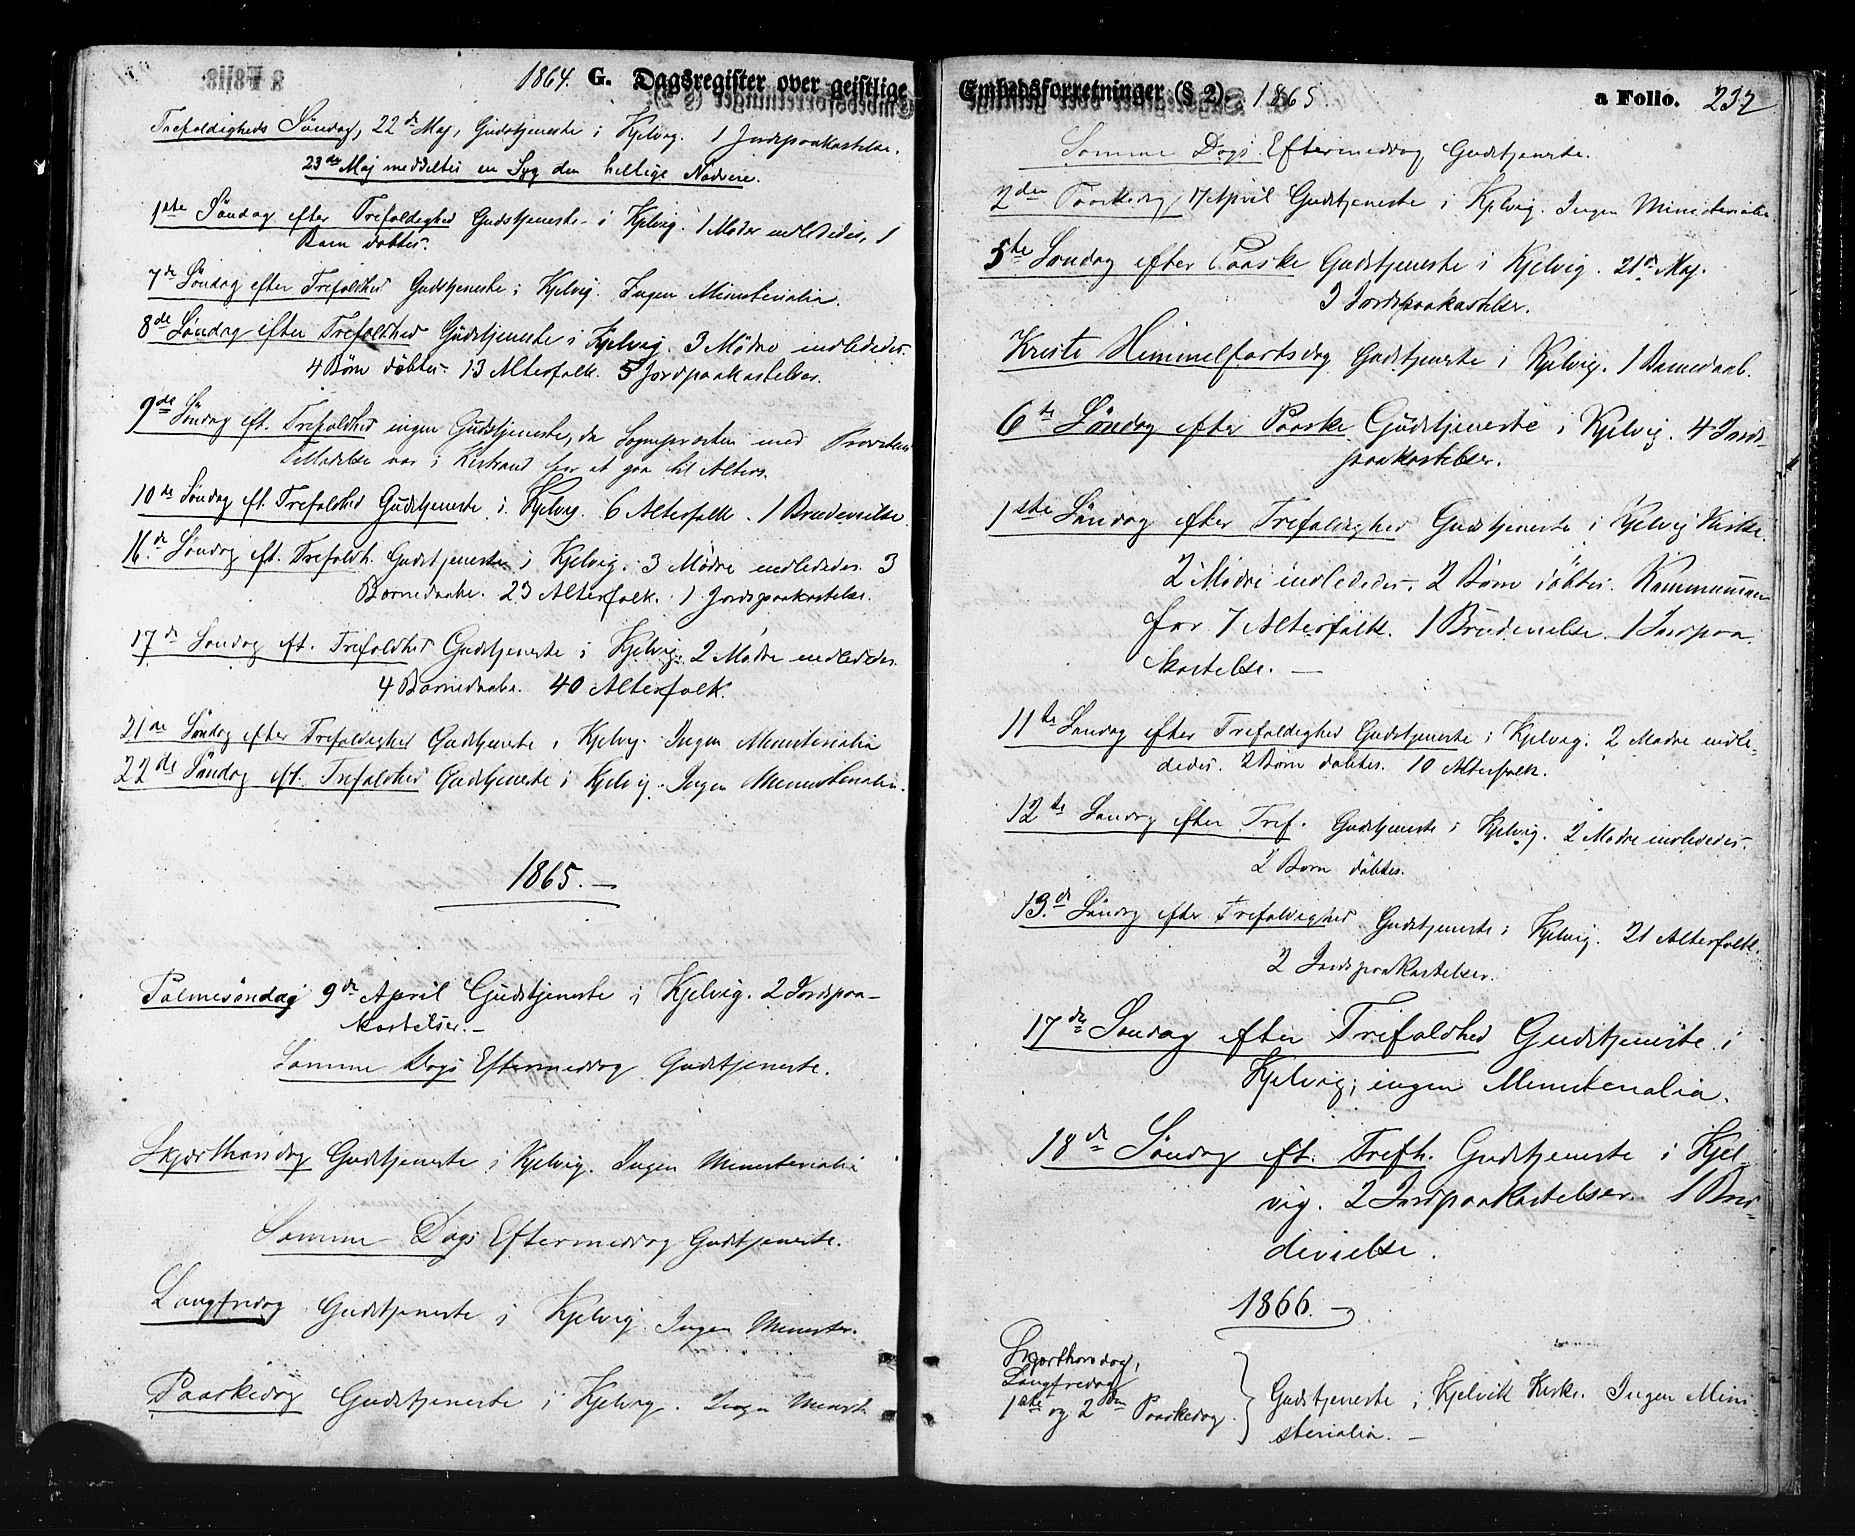 1864. G. Dagsregister over geistlige
Trefoldigheds Søndag, 22de Maj, Gudstjeneste i Kjelvig. 1 Jordpaakastelse.
23de Maj meddeltes en Syg den hellige Nadvere.
1ste Søndag efter Trefoldighed Gudstjeneste i Kjelvig. 1 Moder indlededes, 1
Barn døbtes.
7de Søndag efter Trefoldhed Gudstjeneste i Kjelvig. Ingen Ministerialia.
8de Søndag efter Trefoldhed Gudstjeneste i Kjelvig. 3 Mødre indlededes.
4 Børn døbtes. 13 Alterfolk. 5 Jordpaakastelser.
9de Søndag eft. Trefoldhed ingen Gudstjeneste, da Sognepresten med Provsten
Tilladelse var i Kistrand for at gaa til Alters.
10de Søndag eft. Trefoldhed Gudstjeneste i Kjelvig 6 Alterfolk. 1 Brudevielse.
16de Søndag eft. Trefoldh. Gudstjeneste i Kjelvig. 3 Mødre indlededes 3
Barnedaabe. 23 Alterfolk. 1 Jordpaakastelse.
17de Søndag eft. Trefoldhed Gudstjeneste i Kjelvig. 2 Mødre indlededes.
4 Barnedaabe. 40 Alterfolk.
21de Søndag efter Trefoldighed Gudstjeneste i Kjelvig. Ingen Ministerialia
22de Søndag eft. Trefoldhed Gudstjeneste i Kjelvig. Ingen Ministerialia.
1865.—
Palmesøndag 9de April Gudstjeneste i Kjelvig. 2 Jordpaa-
kastelser.—
Samme Dags Eftermiddag Gudstjeneste.
Skjærthorsdag Gudstjeneste i Kjelvig. Ingen Ministerialia
Samme Dags Eftermiddag Gudstjeneste.
Langfredag Gudstjeneste i Kjelvig. Ingen Minister.
Paaskedag Gudstjeneste i Kjelvig. Ingen Minist.
Embedsforretninger (§ 2). 1865. a Folio. 232
Samme Dags Eftermiddag Gudstjeneste.
2den Paaskedag 17 April Gudstjeneste i Kjelvig. Ingen Ministerialia
5te Søndag efter Paaske Gudstjeneste i Kjelvig. 21de Maj.
3 Jordpaakastelser.
Kristi Himmelfartsdag Gudstjeneste i Kjelvig. 1 Barnedaab.
6te Søndag efter Paaske Gudstjeneste i Kjelvig. 4 Jord-
paakastelser.
1ste Søndag efter Trefoldighed Gudstjeneste i Kjelvig Kirke.
2 Mødre indlededes. 2 Børn døbtes. Kommunion
for 7 Alterfolk. 1 Brudevielse. 1 Jordpaa-
kastelse.—
11te Søndag efter Trefoldighed Gudstjeneste i Kjelvig. 2 Mødre indle-
dedes. 2 Børn døbtes. 10 Alterfolk.
12te Søndag efter Tref. Gudstjeneste i Kjelvig. 2 Mødre indlededes.
2 Børn døbtes.
13de Søndag efter Trefoldighed Gudstjeneste i Kjelvig. 21 Alterfolk.
2 Jordpaakastelser.
17de Søndag efter Trefoldhed Gudstjeneste i
Kjelvig; ingen Ministerialia.
18de Søndag eft. Trefh. Gudstjeneste i Kjel-
vig. 2 Jordpaakastelser. 1 Bru-
devielse.
1866.—
Skjærthorsdag,
Langfredag
1ste og 2den Paaskedag. } Gudstjeneste i Kjelvik Kirke. Ingen Mini-
sterialia.—